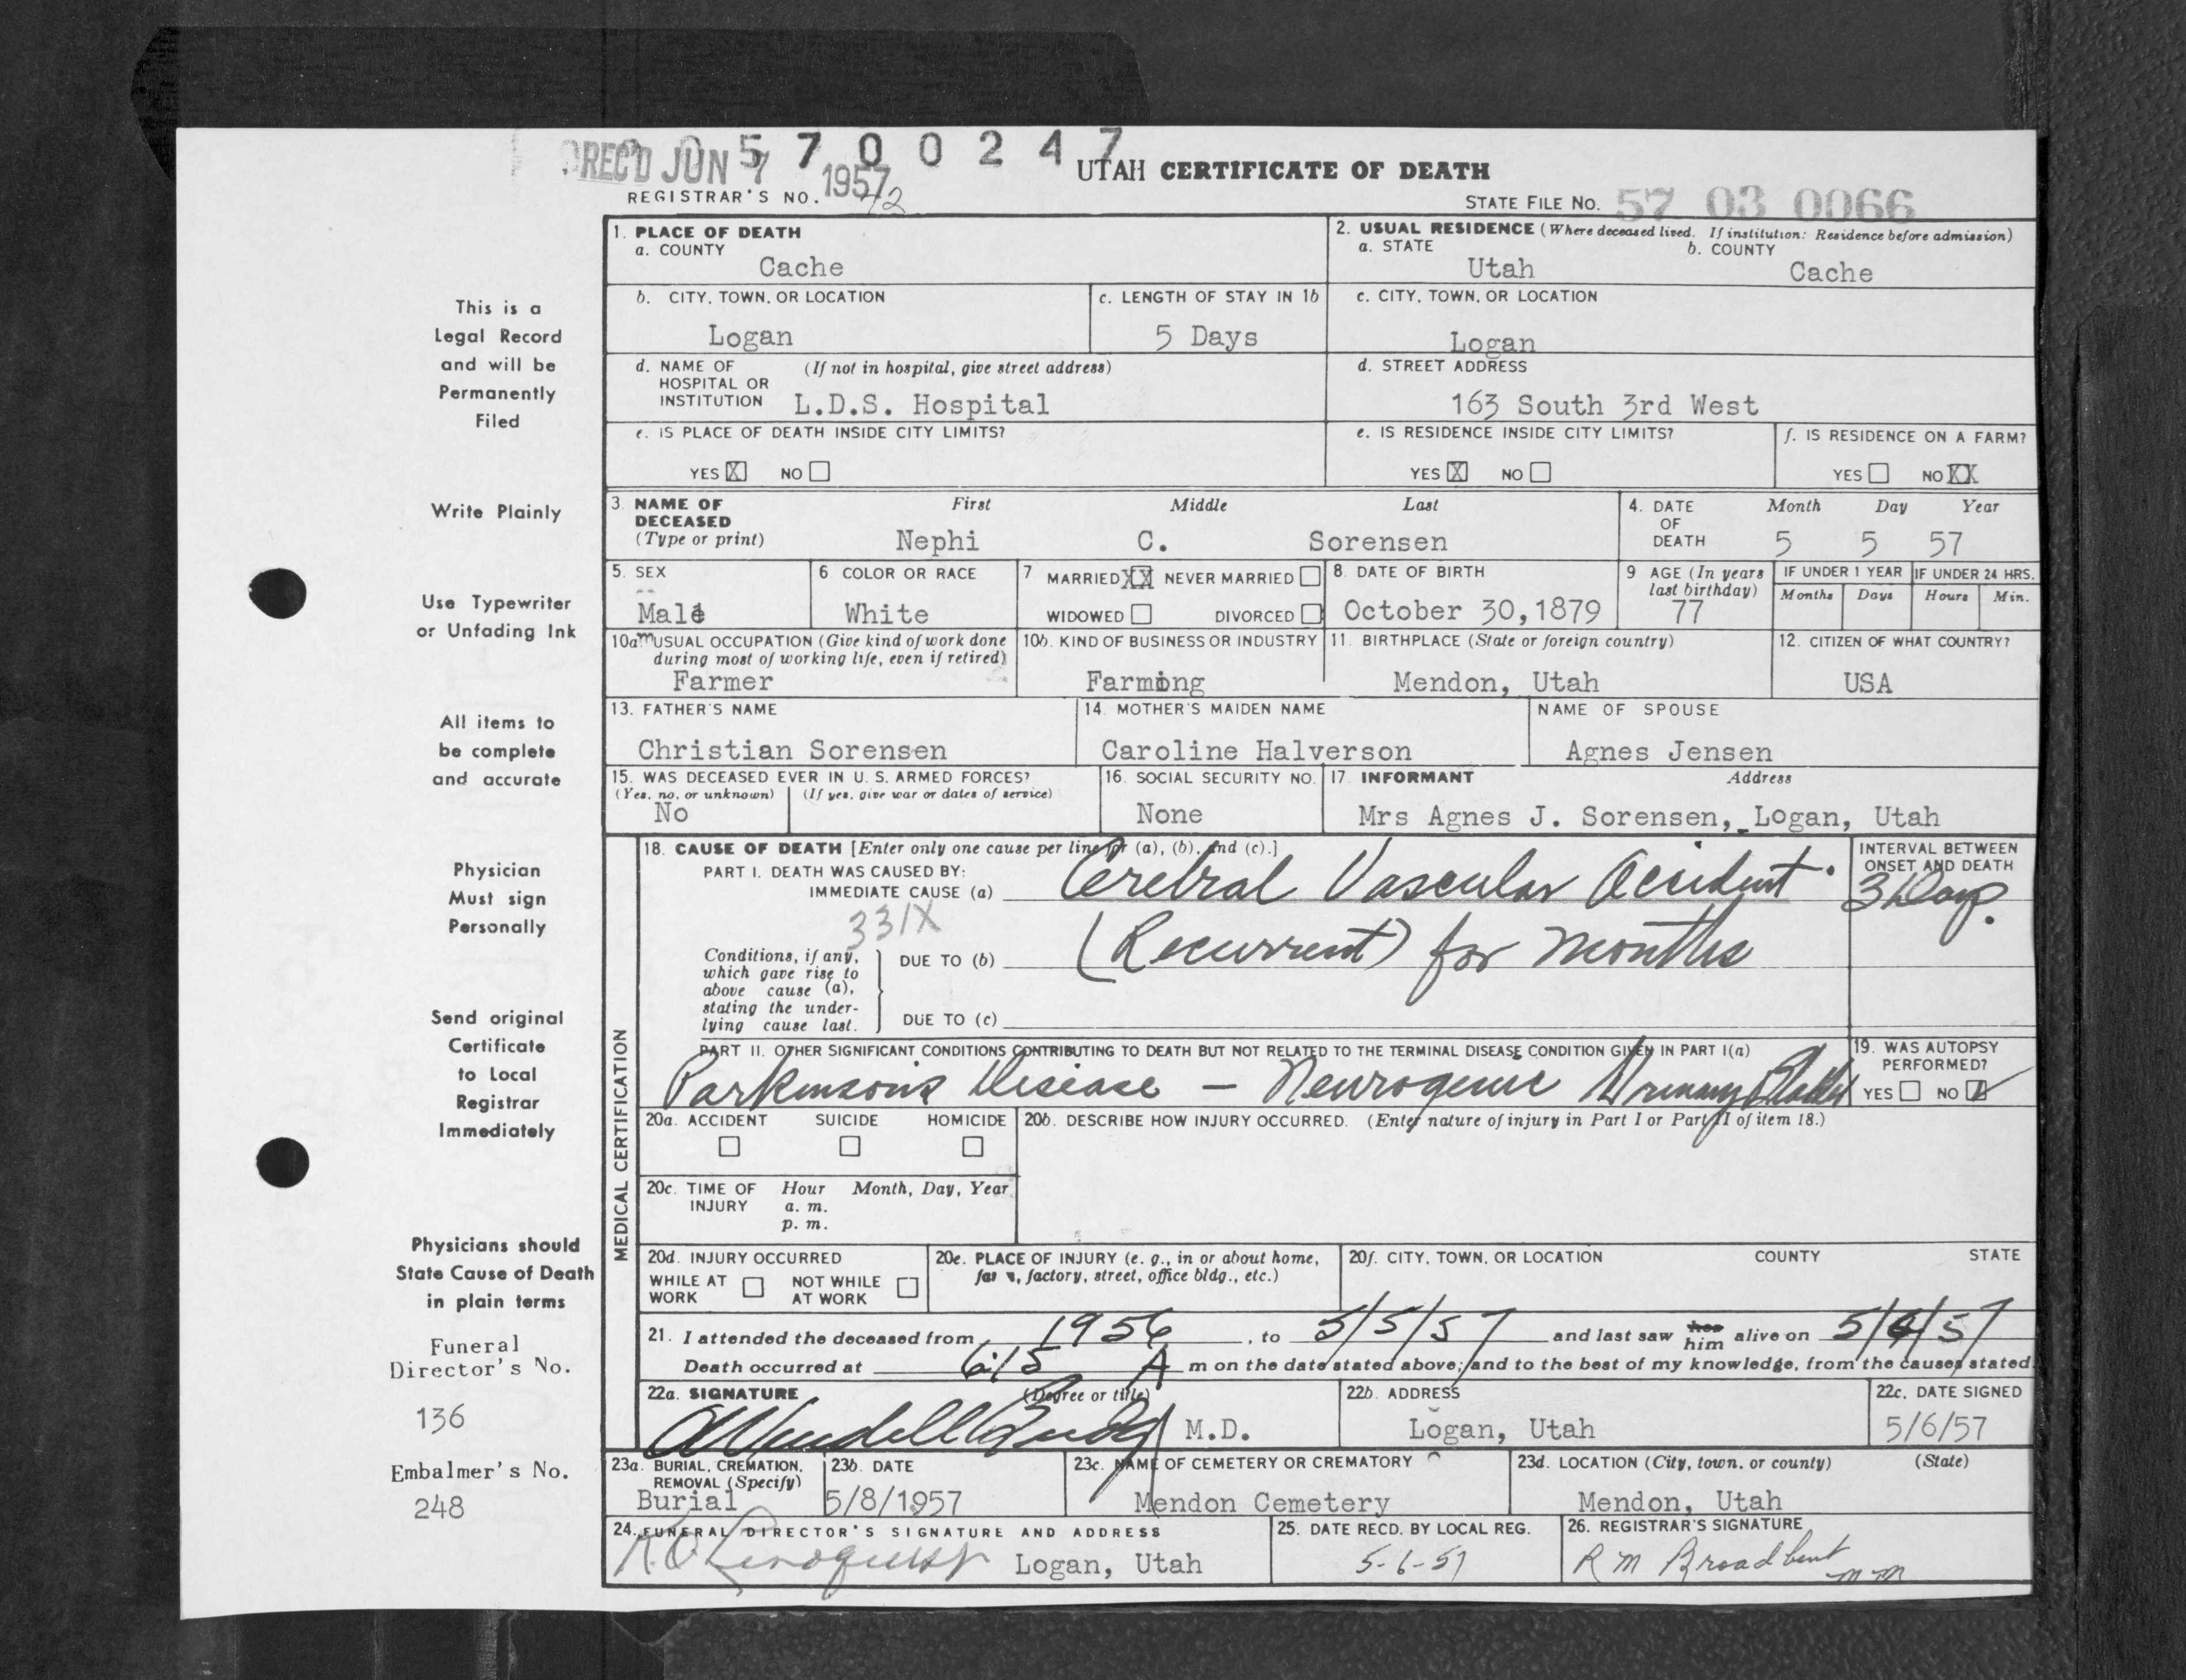 REC'D JUN 7 1957
5700247
UTAH CERTIFICATE OF DEATH
REGISTRAR'S NO. 72
STATE FILE NO. 57 03 0066
This is a
Legal Record
and will be
Permanently
Filed
Write Plainly
Use Typewriter
or Unfading Ink
All items to
be complete
and accurate
Physician
Must sign
Personally
Send original
Certificate
to Local
Registrar
Immediately
Physicians should
State Cause of Death
in plain terms
Funeral
Director's No.
136
Embalmer's No.
248
1. PLACE OF DEATH
a. COUNTY
Cache
2. USUAL RESIDENCE (Where deceased lived. If institution: Residence before admission)
a. STATE b. COUNTY
Utah Cache
b. CITY, TOWN, OR LOCATION
Logan
c. LENGTH OF STAY IN 1b
5 Days
c. CITY, TOWN, OR LOCATION
Logan
d. NAME OF (If not in hospital, give street address)
HOSPITAL OR
INSTITUTION L.D.S. Hospital
d. STREET ADDRESS
163 South 3rd West
e. IS PLACE OF DEATH INSIDE CITY LIMITS?
YES X NO
e. IS RESIDENCE INSIDE CITY LIMITS?
YES X NO
f. IS RESIDENCE ON A FARM?
YES NO XX
3. NAME OF First Middle Last
DECEASED
(Type or print) Nephi C. Sorensen
4. DATE Month Day Year
OF
DEATH 5 5 57
5. SEX
Male
6 COLOR OR RACE
White
7 MARRIED XX NEVER MARRIED
WIDOWED DIVORCED
8. DATE OF BIRTH
October 30,1879
9 AGE (In years
last birthday)
77
IF UNDER 1 YEAR IF UNDER 24 HRS.
Months Days Hours Min.
10a. USUAL OCCUPATION (Give kind of work done
during most of working life, even if retired)
Farmer
10b. KIND OF BUSINESS OR INDUSTRY
Farming
11. BIRTHPLACE (State or foreign country)
Mendon, Utah
12. CITIZEN OF WHAT COUNTRY?
USA
13. FATHER'S NAME
Christian Sorensen
14. MOTHER'S MAIDEN NAME
Caroline Halverson
NAME OF SPOUSE
Agnes Jensen
15. WAS DECEASED EVER IN U. S. ARMED FORCES?
(Yes, no, or unknown) (If yes, give war or dates of service)
No
16. SOCIAL SECURITY NO.
None
17. INFORMANT Address
Mrs Agnes J. Sorensen, Logan, Utah
MEDICAL CERTIFICATION
18. CAUSE OF DEATH [Enter only one cause per line for (a), (b), and (c).]
PART I. DEATH WAS CAUSED BY:
IMMEDIATE CAUSE (a) Cerebral Vascular Accident
INTERVAL BETWEEN
ONSET AND DEATH
3 Days.
331X
Conditions, if any,
which gave rise to
above cause (a),
stating the under-
lying cause last.
DUE TO (b) (Recurrent) for months
DUE TO (c)
PART II. OTHER SIGNIFICANT CONDITIONS CONTRIBUTING TO DEATH BUT NOT RELATED TO THE TERMINAL DISEASE CONDITION GIVEN IN PART I(a)
Parkinsons Disease - Neurogenic Urinary Bladder
19. WAS AUTOPSY
PERFORMED?
YES NO
20a. ACCIDENT SUICIDE HOMICIDE
20b. DESCRIBE HOW INJURY OCCURRED. (Enter nature of injury in Part I or Part II of item 18.)
20c. TIME OF Hour Month, Day, Year
INJURY a. m.
p. m.
20d. INJURY OCCURRED
WHILE AT NOT WHILE
WORK AT WORK
20e. PLACE OF INJURY (e. g., in or about home,
farm, factory, street, office bldg., etc.)
20f. CITY, TOWN, OR LOCATION COUNTY STATE
21. I attended the deceased from 1956, to 5/5/57 and last saw her him alive on 5/4/57
Death occurred at 6:15 A m on the date stated above; and to the best of my knowledge, from the causes stated.
22a. SIGNATURE (Degree or title)
M.D.
22b. ADDRESS
Logan, Utah
22c. DATE SIGNED
5/6/57
23a. BURIAL, CREMATION,
REMOVAL (Specify)
Burial
23b. DATE
5/8/1957
23c. NAME OF CEMETERY OR CREMATORY
Mendon Cemetery
23d. LOCATION (City, town, or county) (State)
Mendon, Utah
24. FUNERAL DIRECTOR'S SIGNATURE AND ADDRESS
Logan, Utah
25. DATE RECD. BY LOCAL REG.
5-6-57
26. REGISTRAR'S SIGNATURE
R M Broadbent